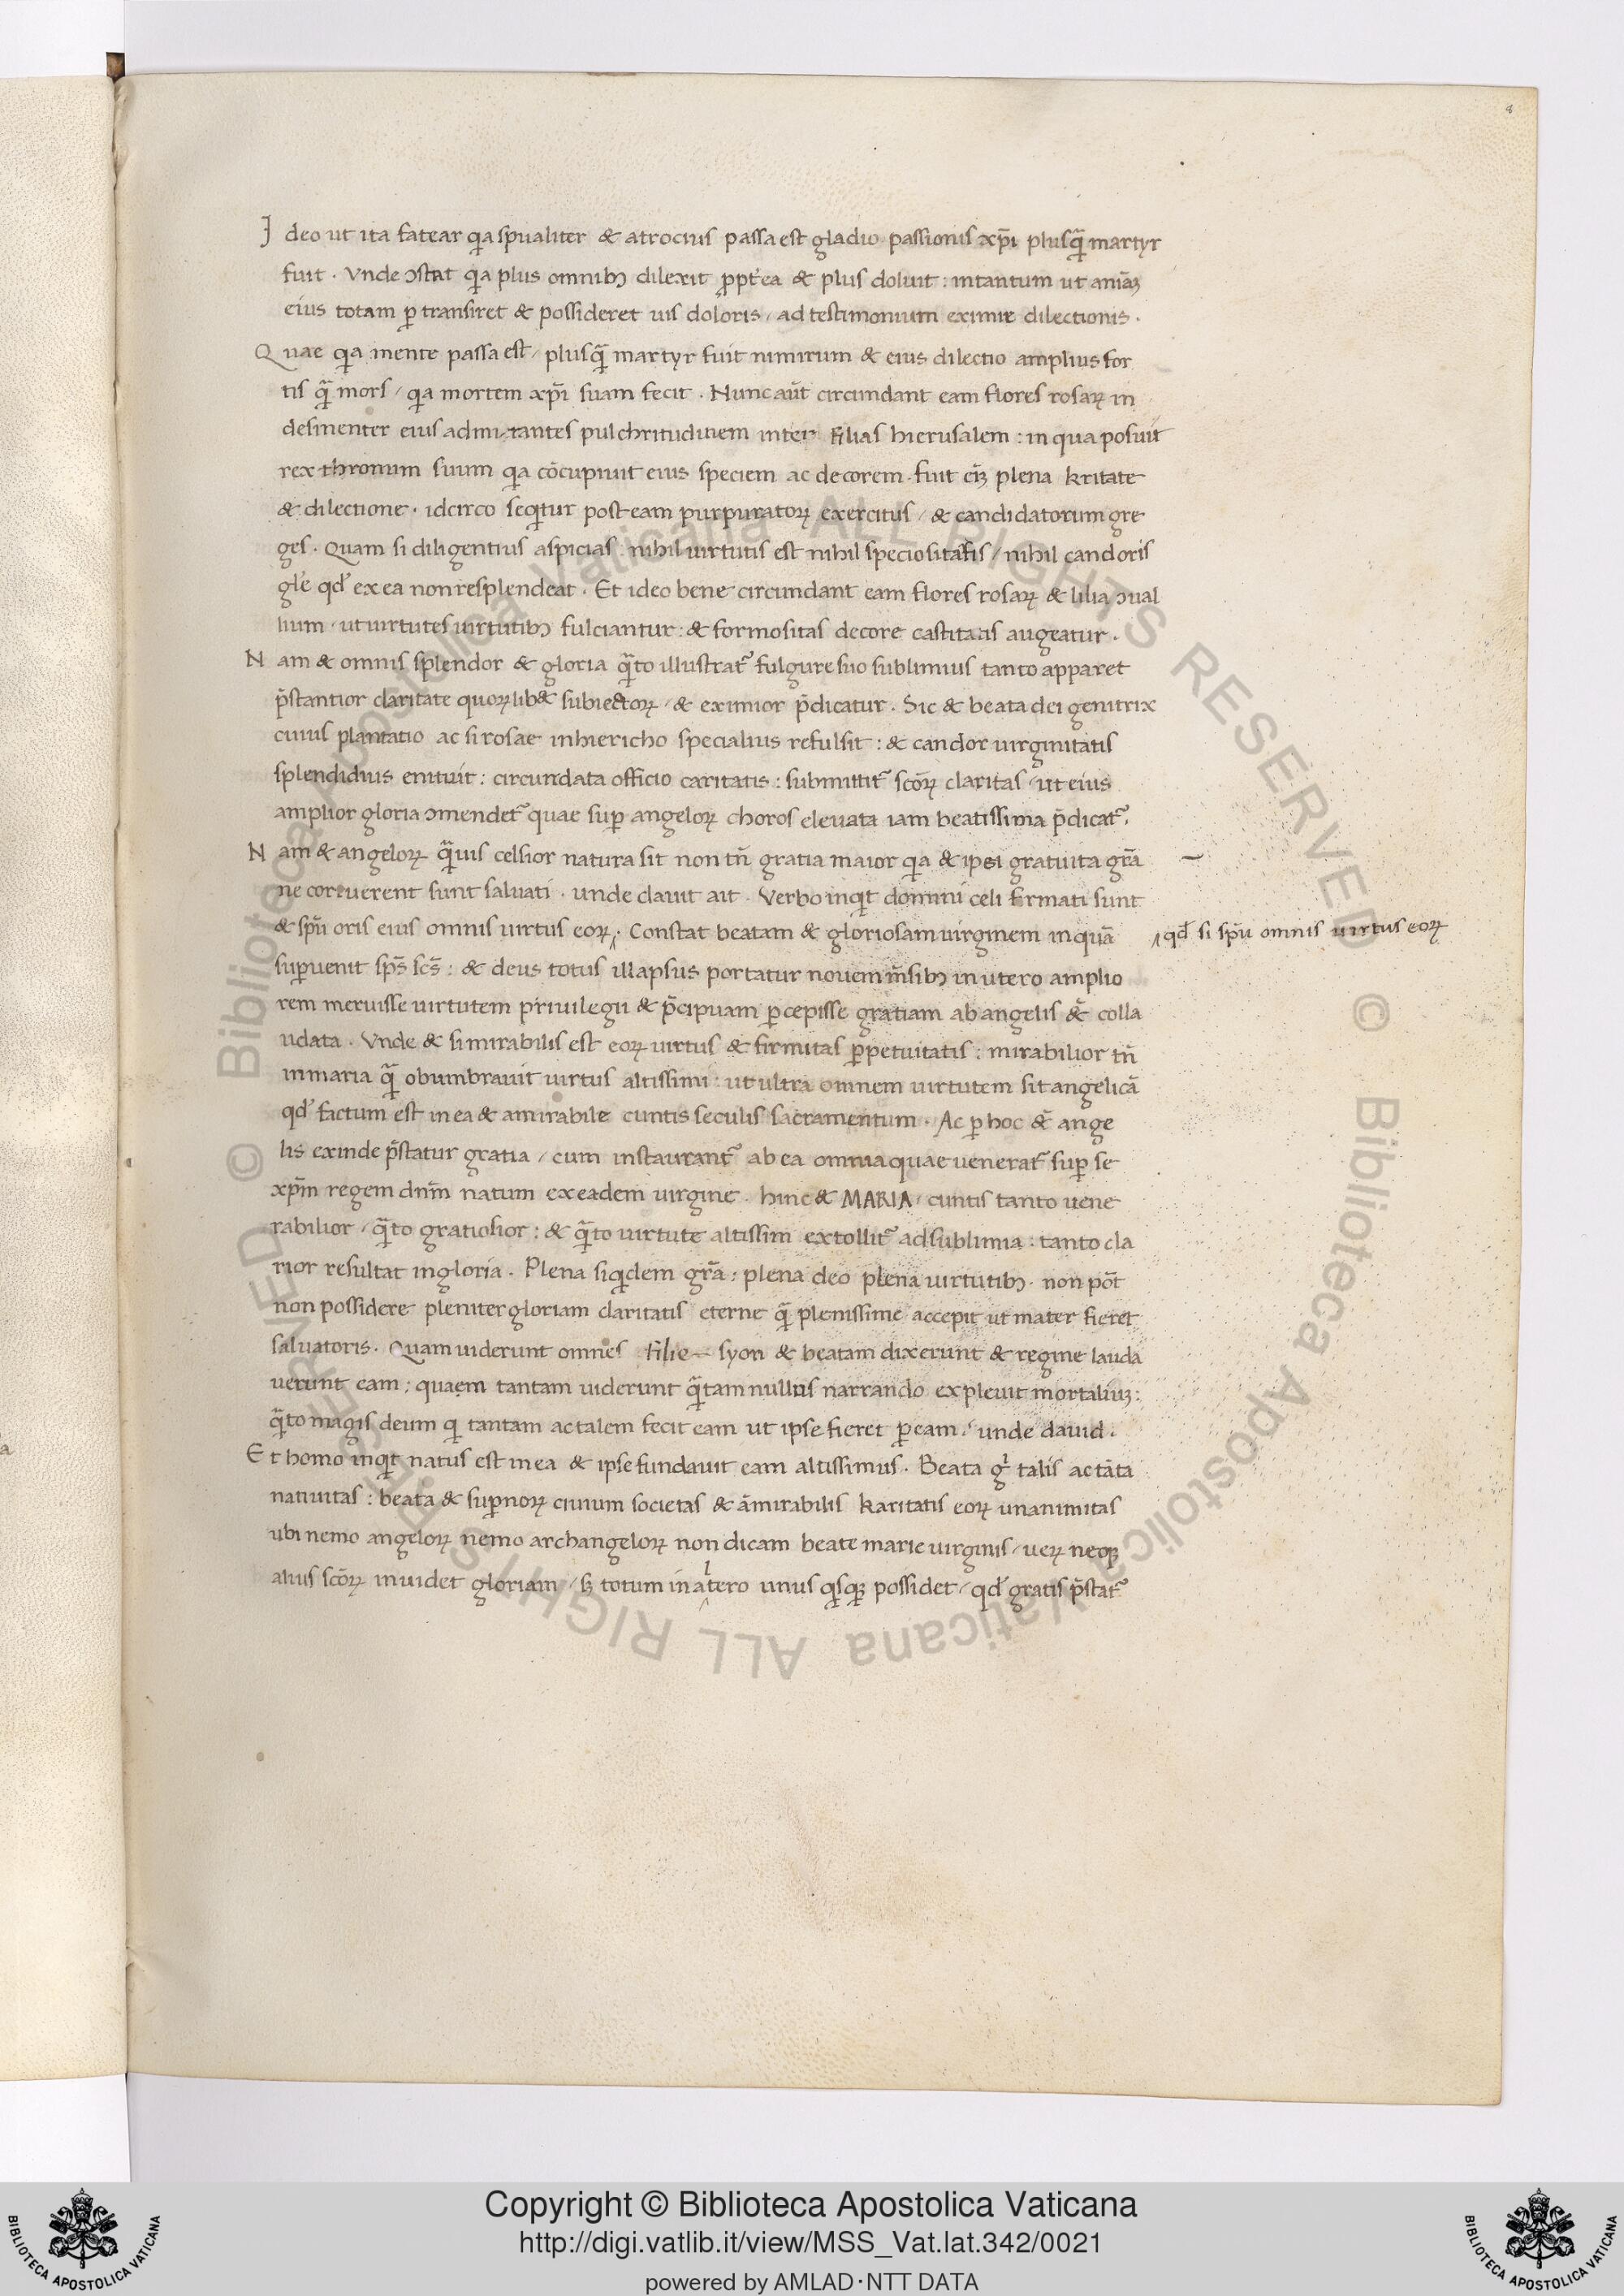 8
Ideo ut ita fatear q̃a spualiter & atrocius passa est gladio passionis xp̃i plusq̃ martyr
fuit . Vnde ↄstat q̃a plus omnibꝫ dilexit ꝓpt̃ea & plus doluit : intantum ut aniãꝫ
eius totam ꝑ transiret & possideret uis doloris / ad testimonium eximie dilectionis .
Quae q̃a mente passa est / plusq̃ martyr fuit nimirum & eius dilectio amplius for
tis q̃ mors / q̃a mortem xp̃i suam fecit . Nunc aũt circundant eam flores rosaꝝ in
desinenter eius admi-rantes pulchritudinem inter filias hierusalem : in qua posuit
rex thronum suum q̃a cõcupiuit eius speciem ac decorem . fuit eñ plena kritate
& dilectione . idcirco seq̃tur post eam purpuratoꝝ exercitus / & candidatorum gre
ges . Quam si diligentius aspicias : nihil uirtutis est nihil speciositatis / nihil candoris
gl̃e qd̃ ex ea non resplendeat . Et ideo bene circundant eam flores rosaꝝ & lilia ↄual
lium / ut uirtutes uirtutibꝫ fulciantur : & formositas decore castitatis augeatur .
Nam & omnis splendor & gloria q̃to illustrat᷑ fulgure suo sublimius tanto apparet
p̃stantior claritate quoꝝlib& subiectoꝝ / & eximior p̃dicatur . Sic & beata dei genitrix
cuius plantatio ac si rosae inhiericho specialius refulsit : & candor uirginitatis
splendidius enituit : circundata officio caritatis : submittit᷑ scõꝝ claritas / ut eius
amplior gloria ↄmendet᷑ quae suꝑ angeloꝝ choros eleuata iam beatissima p̃dicat᷑ .
Nam & angeloꝝ q̃uis celsior natura sit non tñ gratia maior q̃a & ipsi gratuita gr̃a
ne corruerent sunt saluati . unde dauit ait . Verbo inq̃t domini celi firmati sunt
& spũ oris eius omnis uirtus eoꝝ . Constat beatam & gloriosam uirginem in quã
qd̃ si spũ omnis uirtus eoꝝ
suꝑuenit sp̃s sc̃s : & deus totus illapsus portatur nouem m̃sibꝫ in utero amplio
rem meruisse uirtutem priuilegii & p̃cipuam ꝑcepisse gratiam ab angelis & colla
udata . Vnde & si mirabilis est eoꝝ uirtus & firmitas ꝑpetuitatis : mirabilior tñ
in maria q̃ obumbrauit uirtus altissimi : ut ultra omnem uirtutem sit angelicã
qd̃ factum est in ea & amirabile cuntis seculis sacramentum . Ac ꝑ hoc & ange
lis exinde p̃statur gratia / cum instaurant᷑ ab ea omnia quae uenerat᷑ suꝑ se
xp̃m regem dnm̃ natum ex eadem uirgine . hinc & MARIA / cuntis tanto uene
rabilior / q̃to gratiosior : & q̃to uirtute altissim extollit᷑ ad sublimia : tanto cla
rior resultat in gloria . Plena siq̃dem gr̃a : plena deo plena uirtutibꝫ . non põt
non possidere pleniter gloriam claritatis eterne q̃ plenissime accepit ut mater fieret
saluatoris . Quam uiderunt omnes filie — syon & beatam dixerunt & regine lauda
uerunt eam : quaem tantam uiderunt q̃tam nullus narrando expleuit mortaliuꝫ :
q̃to magis deum q̃ tantam ac talem fecit eam ut ipse fieret ꝑ eam . unde dauid .
Et homo inq̃t natus est in ea & ipse fundauit eam altissimus . Beata g̃ talis ac tãta
natiuitas : beata & suꝑnoꝝ ciuium societas & ãmirabilis karitatis eoꝝ unanimitas
ubi nemo angeloꝝ nemo archangeloꝝ non dicam beate marie uirginis / ueꝝ neqꝫ
alius scõꝝ inuidet gloriam / sꝫ totum in altero unus q̃sqꝫ possidet / qd̃ gratis p̃stat᷑
© Biblioteca Apostolica Vaticana ALL RIGHTS RESERVED © Biblioteca Apostolica Vaticana ALL RIGHTS RESERVED
Copyright © Biblioteca Apostolica Vaticana
http://digi.vatlib.it/view/MSS_Vat.lat.342/0021
powered by AMLAD·NTT DATA
BIBLIOTECA APOSTOLICA VATICANA
BIBLIOTECA APOSTOLICA VATICANA